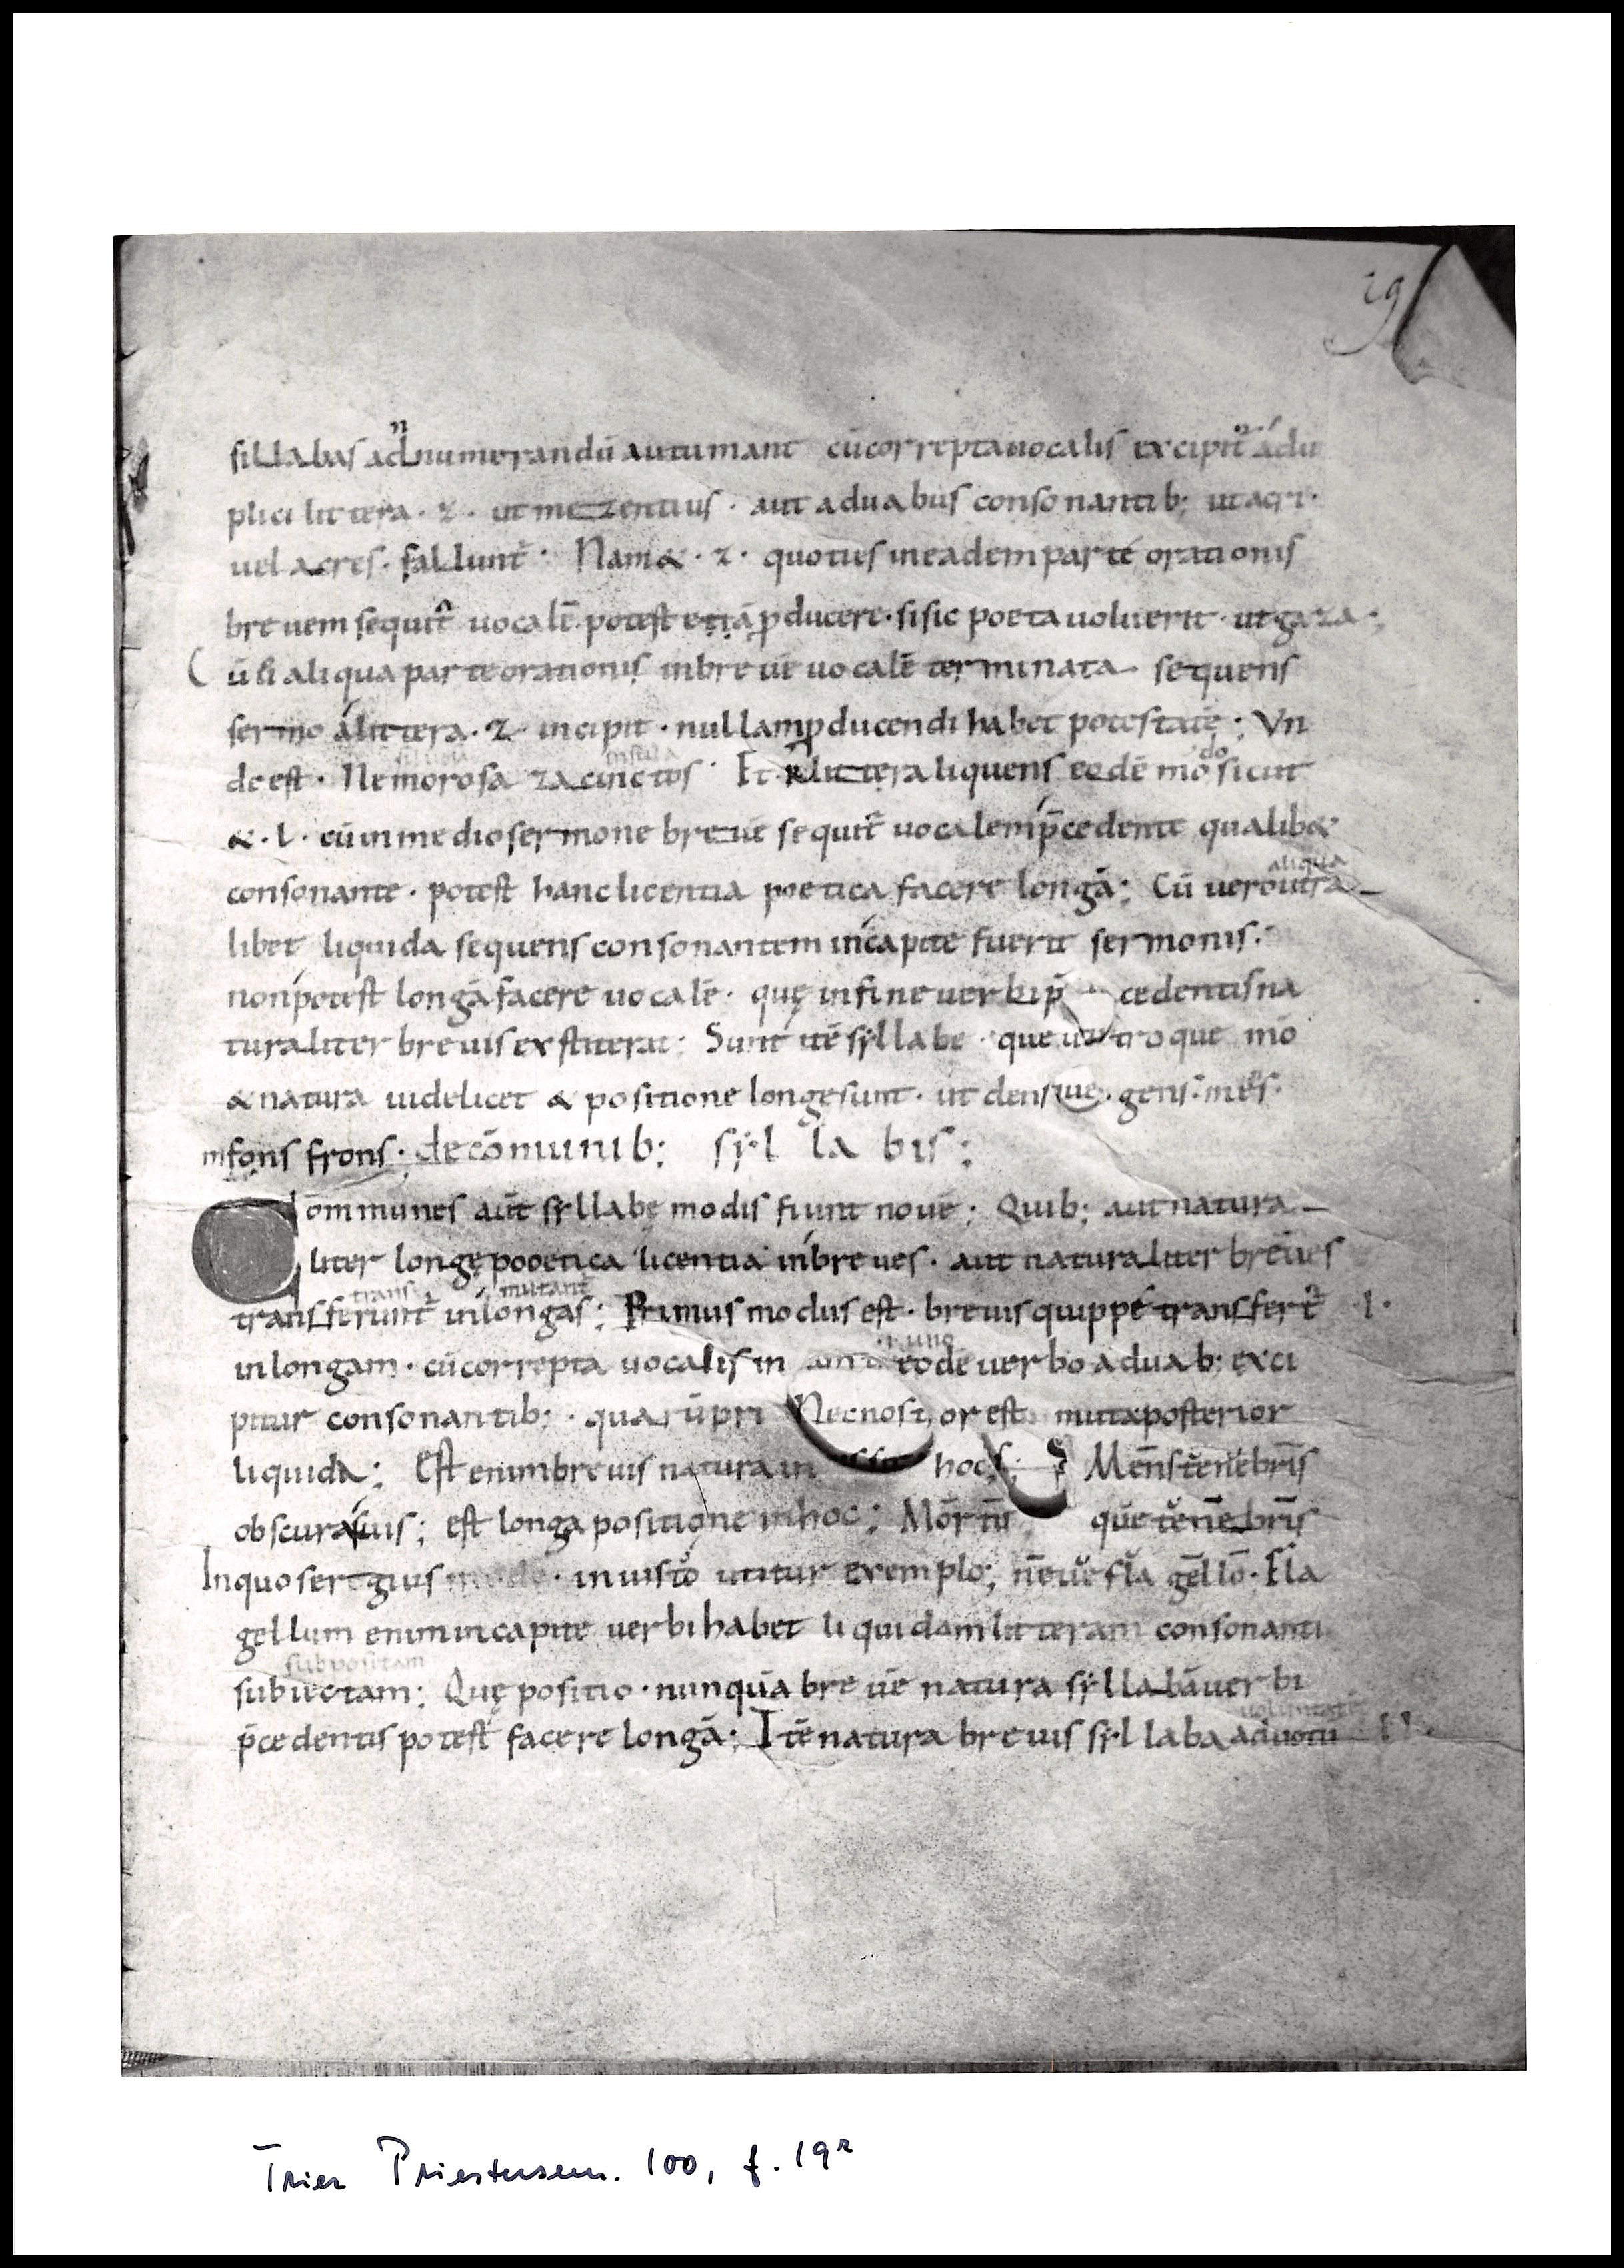 19
sillabas adnumerandū autumant cū correpta uocalis excipit̄ á du
plici littera · z · ut mezentius · aut a duabus consonantib; ut acri ·
uel acres · fallunt̄ · Nam & · z · quoties in eadem parte orationis
breuem sequit̄ uocalē potest etiā ꝓducere · si sic poeta uoluerit · ut gaza ·;
Cū ū aliqua parte orationis in breuē uocalē terminata sequens
sermo á littera · z · incipit · nullam ꝓducendi habet potestatē ; Vn
insula
de est · Nemorosa zacinctos · Et R littera liquens eodē modo sicut
& · l · cū in medio sermone breuē sequit̄ uocalem p̄cedente qualib&
aliqua
consonante · potest hanc licentia poetica facere longā ; Cū uero utra
libet liquida sequens consonantem in capite fuerit sermonis ·
non potest longā facere uocalē · quę in fine uerbi p̄ cedentis na
turaliter breuis exstiterat ; Sunt itē syllabe · que utroque mō
& natura uidelicet & positione longe sunt · ut densque · gens · mens ·
fons frons · de cōmunib; syllabis ;
Communes aūt syllabę modis fiunt nouē ; Quib; aut natura
liter longę pooetica licentia in breues · aut naturaliter breues
mutant̄
transferunt̄ in longas ; Primus modus est · breuis quippe transfert̄ I ·
in longam · cū correpta uocalis in eodē uerbo a duab; exci
pitur consonantib; · quarū pri or est muta posterior
liquida ; Est enim breuis natura in hoc ; Nec nos Mēns tĕnĕbrīs
obscurasuis ; est longa positione in hoc ; Mōrtū quĕ tĕnēbrīs
In quo sergius · inuisto utitur exemplo ; nēuĕ flă gēllō · Fla
gellum enim in capite uerbi habet liquidam litteram consonanti
subpositam
subiectam ; Quę positio · nunquā breuē natura syllabā uerbi
p̄cedentis potest facere longā ; Itē natura breuis syllaba ad uotū II ·
Trier Priestersem. 100, f. 19r